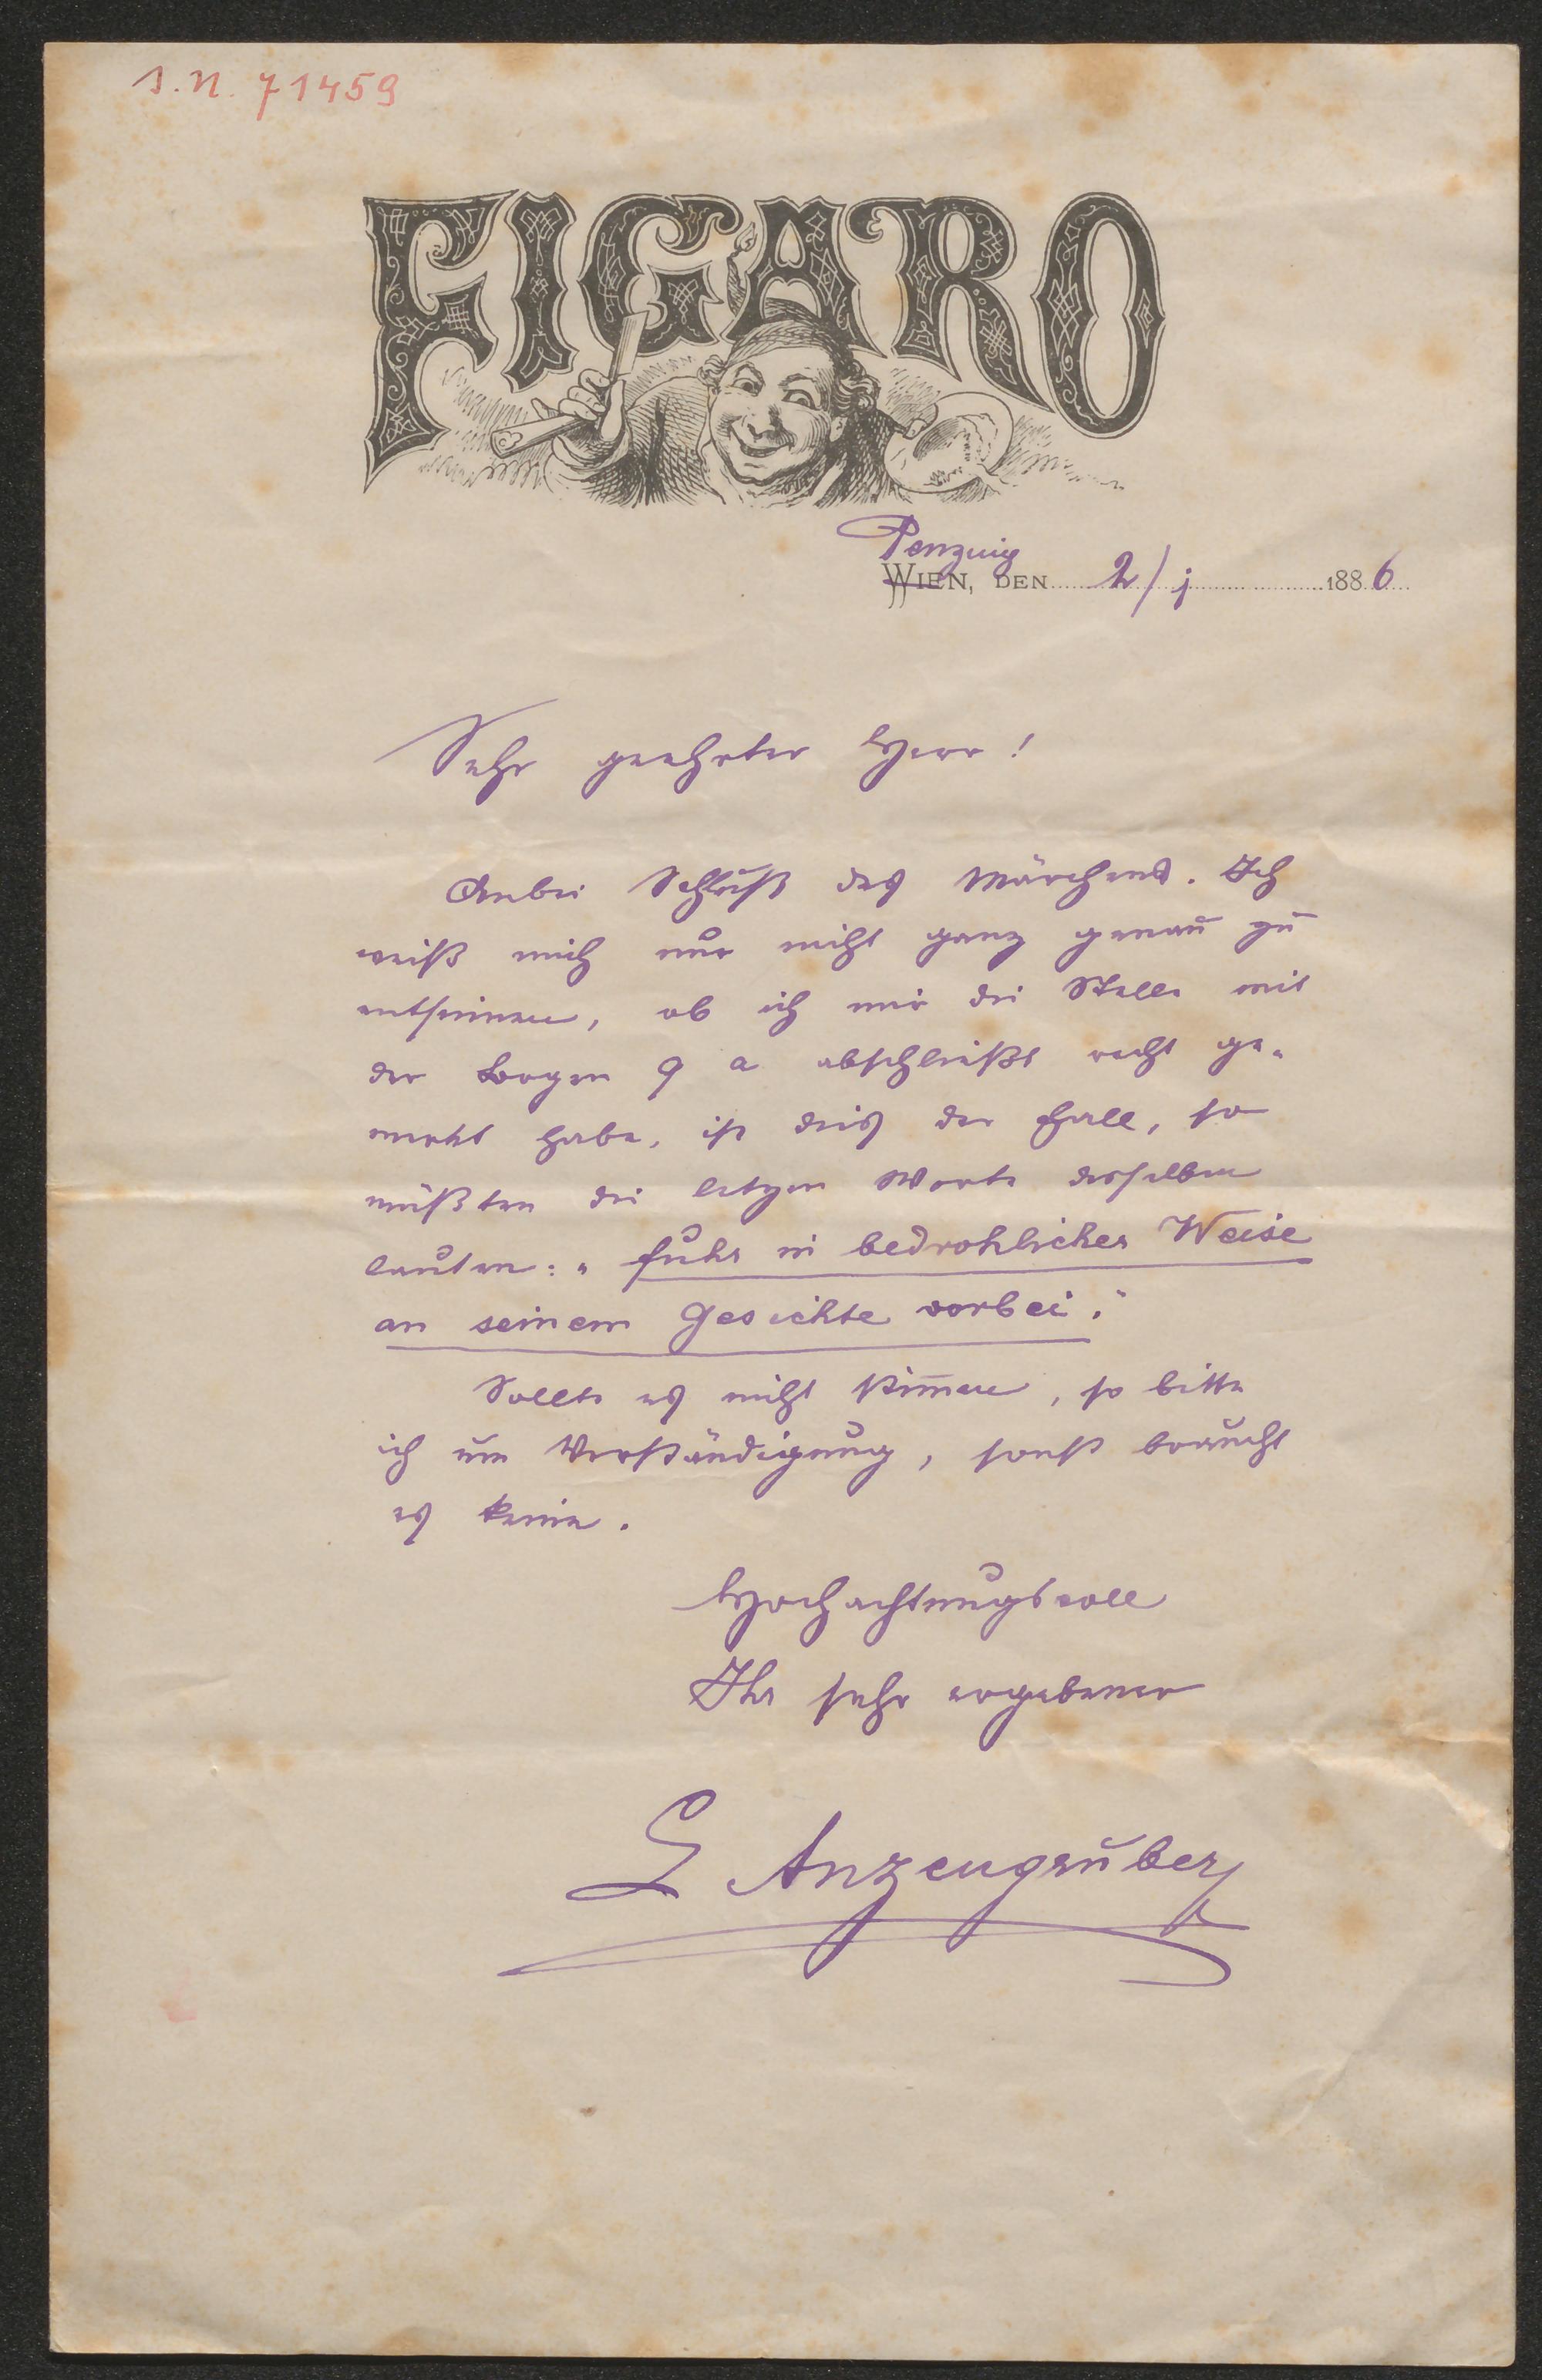 I.N. 71459
FIGARO
Penzing
WIEN, DEN 2/j 1886
Sehr geehrter Herr!
Anbei Schluß des Märchens. Ich
weiß mich nur nicht ganz genau zu
entsinnen, ob ich mir die Stelle mit
der Bogen 9 a abschließt recht ge-
merkt habe, ist dies der Fall, so
müßten die letzen Worte desselben
lauten: „fuhr in bedrohlicher Weise
an seinem Gesichte vorbei."
Sollte es nicht stim̄en, so bitte
ich um Verständigung, sonst braucht
es keine.
Hochachtungsvoll
Ihr sehr ergebener
L Anzengruber